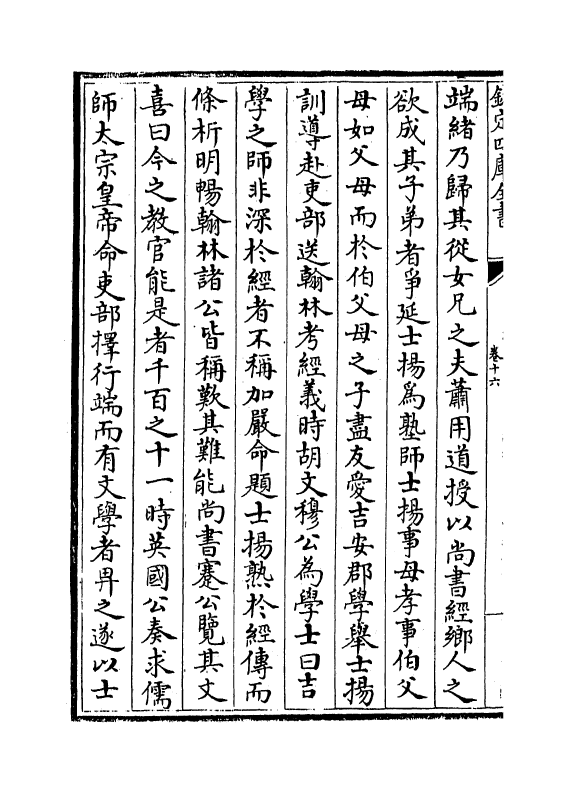 欽定四庫全書
卷十六
端緒乃歸其從女兄之夫蕭用道授以尚書經鄉人之
欲成其子弟者爭延士揚爲塾師士揚事母孝事伯父
母如父母而於伯父母之子盡友愛吉安郡學舉士揚
訓導赴吏部送翰林考經義時胡文穆公為學士曰吉
學之師非深於經者不稱加嚴命題士揚熟於經傳而
條析明暢翰林諸公皆稱歎其難能尚書蹇公覽其文
喜曰今之教官能是者千百之十一時英國公奏求儒
師太宗皇帝命吏部擇行端而有文學者畀之遂以士